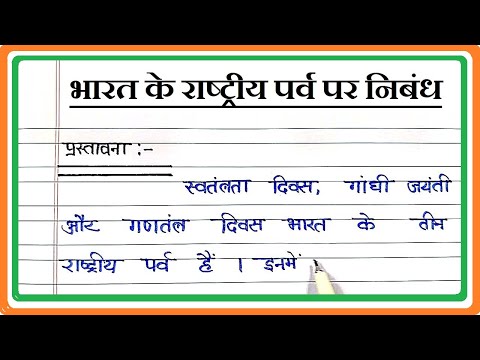 भारत के राष्ट्रीय पर्व पर निबंध
प्रस्तावना :-
स्वतंत्रता दिवस, गांधी जयंती
और गणतंत्र दिवस भारत के तीन
राष्ट्रीय पर्व हैं । इनमें